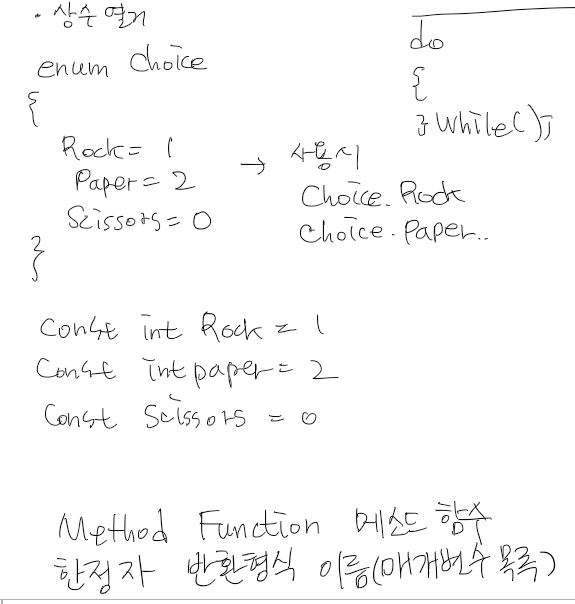 · 상수 열거
enum Choice
{
Rock = 1
Paper = 2
Scissors = 0
}
→ 사용시
Choice.Rock
Choice.Paper..
do
{
} While();
Const int Rock = 1
Const int paper = 2
Const Scissors = 0
Method Function 메소드 함수
한정자 반환형식 이름(매개변수 목록)